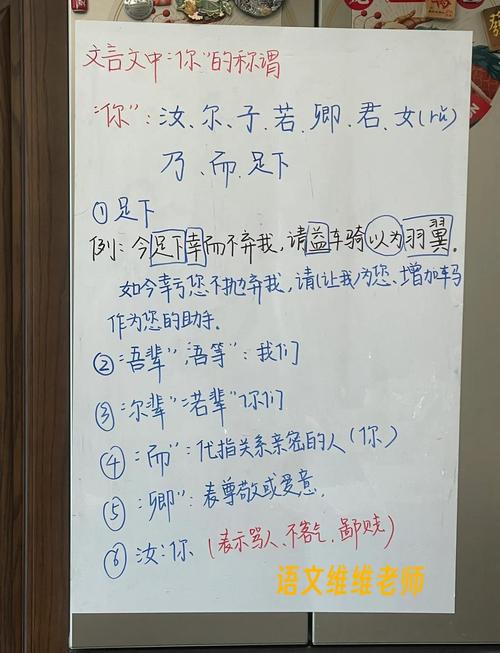 文言文中:"你"的称谓
"你":汝、尔、子、若、卿、君、女(rǔ)
乃、而、足下
①足下
例:今足下幸而不弃我,请益车骑以为羽翼。
如今幸亏您不抛弃我,请(让我)为您、增加车马
作为您的助手。
②"吾辈","吾等":我们
③"尔辈""若辈"你们
④"而":代指关系亲密的人(你)
⑤"卿":表尊敬或爱意。
⑥汝:你、(表示骂人、不客气、鄙贱)
语文维维老师